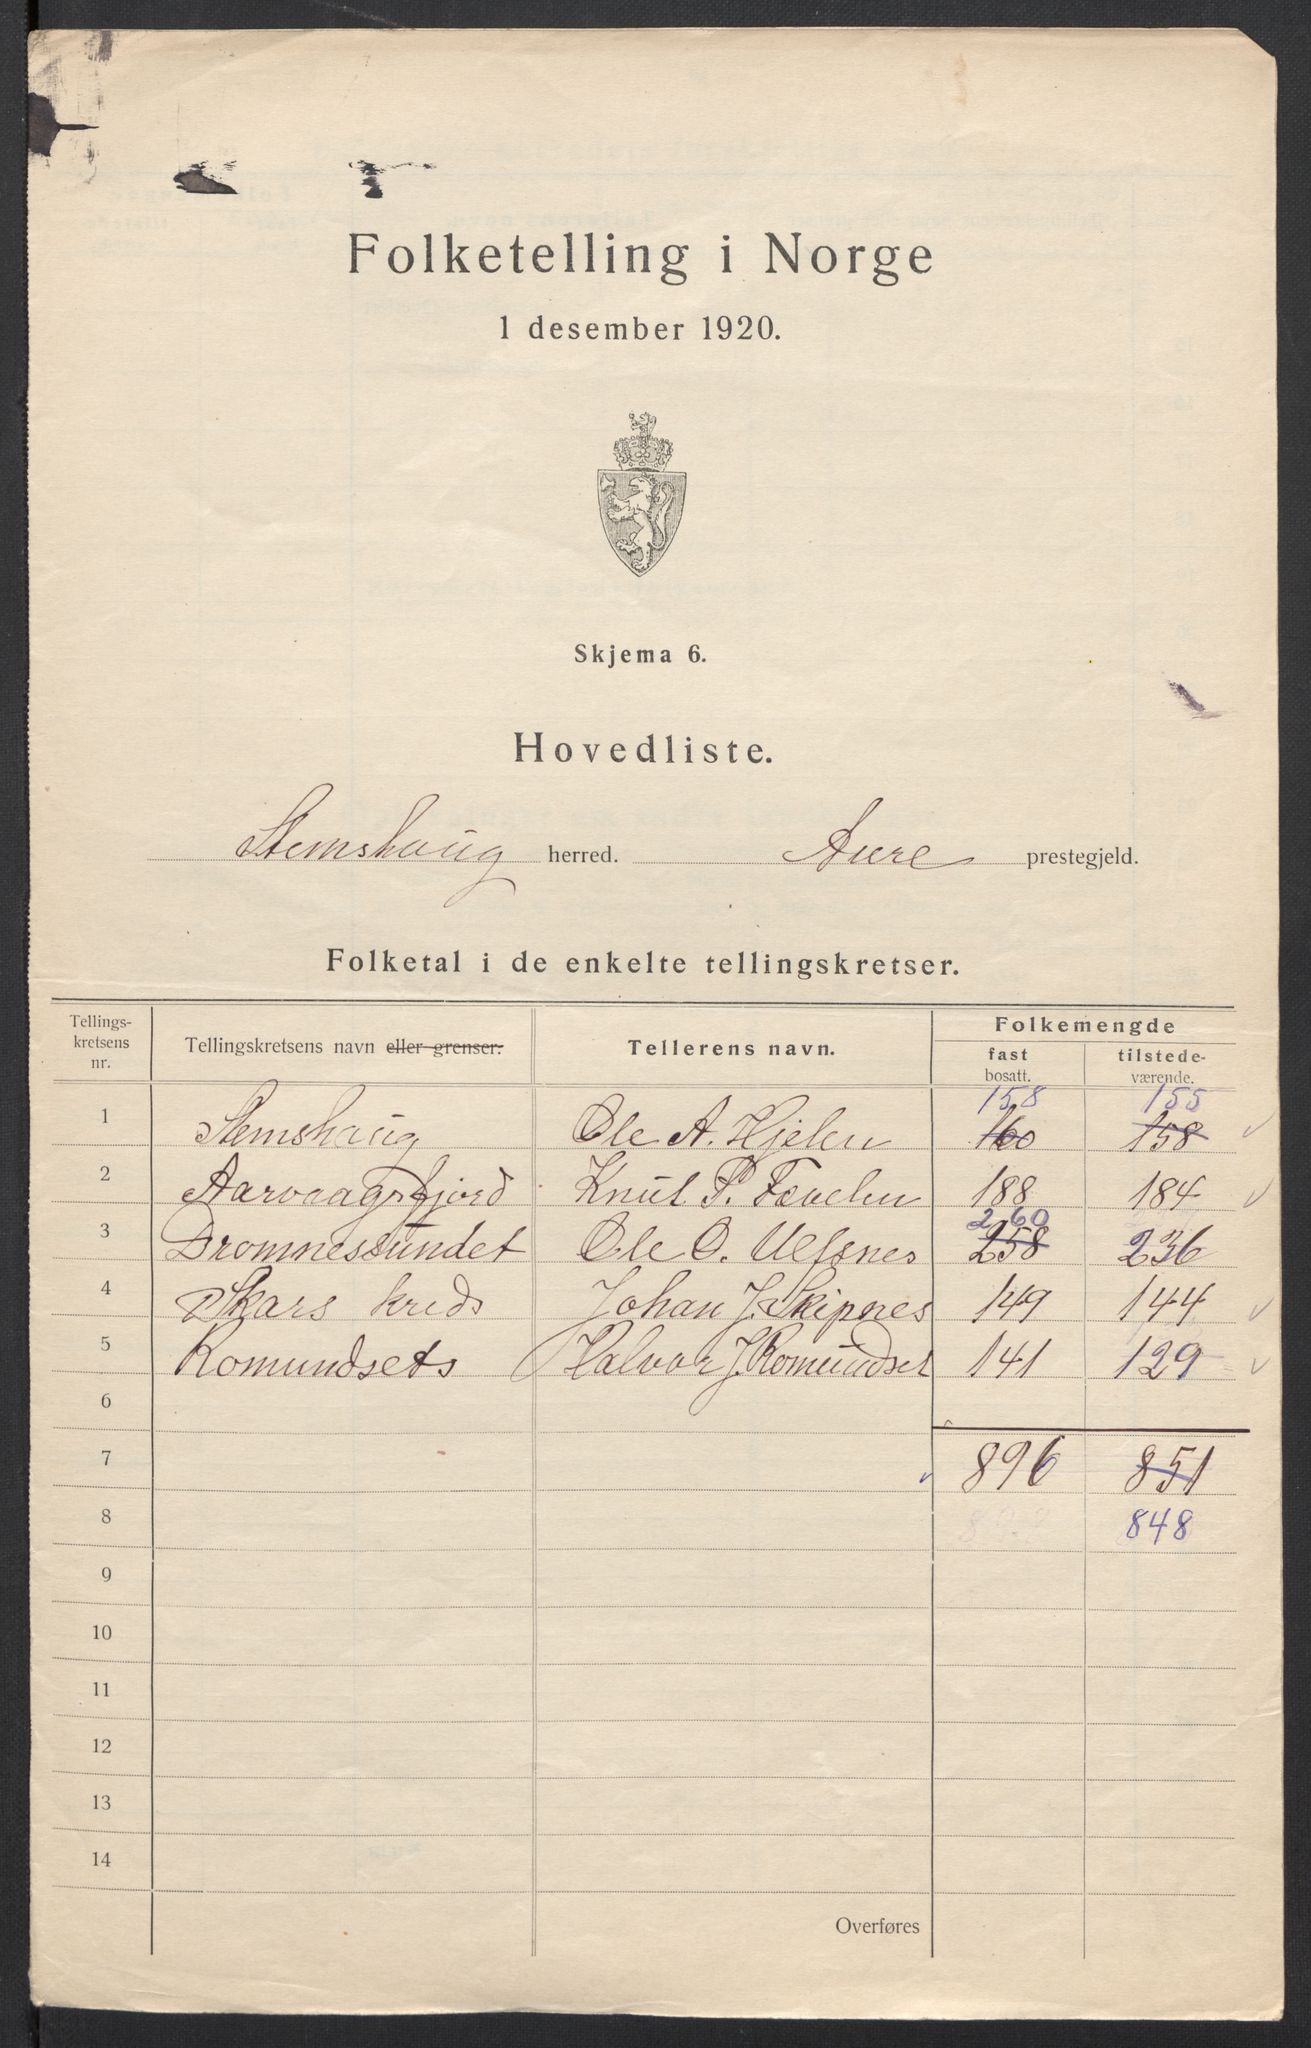 Folketelling i Norge
1 desember 1920.
Skjema 6.
Hovedliste.
Stemshaug herred. Aure prestegjeld.
Folketal i de enkelte tellingskretser.
Tellings-
kretsens
nr.
Tellingskretsens navn eller grenser.
Tellerens navn.
Folkemengde
fast
bosatt.
tilstede-
værende.
158 155
1 Stemshaug Ole A. Hjelen 160 158
2 Aarvaagsfjord Knut P. 188 184
260
3 Dromnessundet Ole O. Ulfsnes 258 236
4 Skars kreds Johan J. Skipnes 149 144
5 Romundsets Halvor J. Romundset 141 129
6
7 896 851
8 848
9
10
11
12
13
14
Overføres